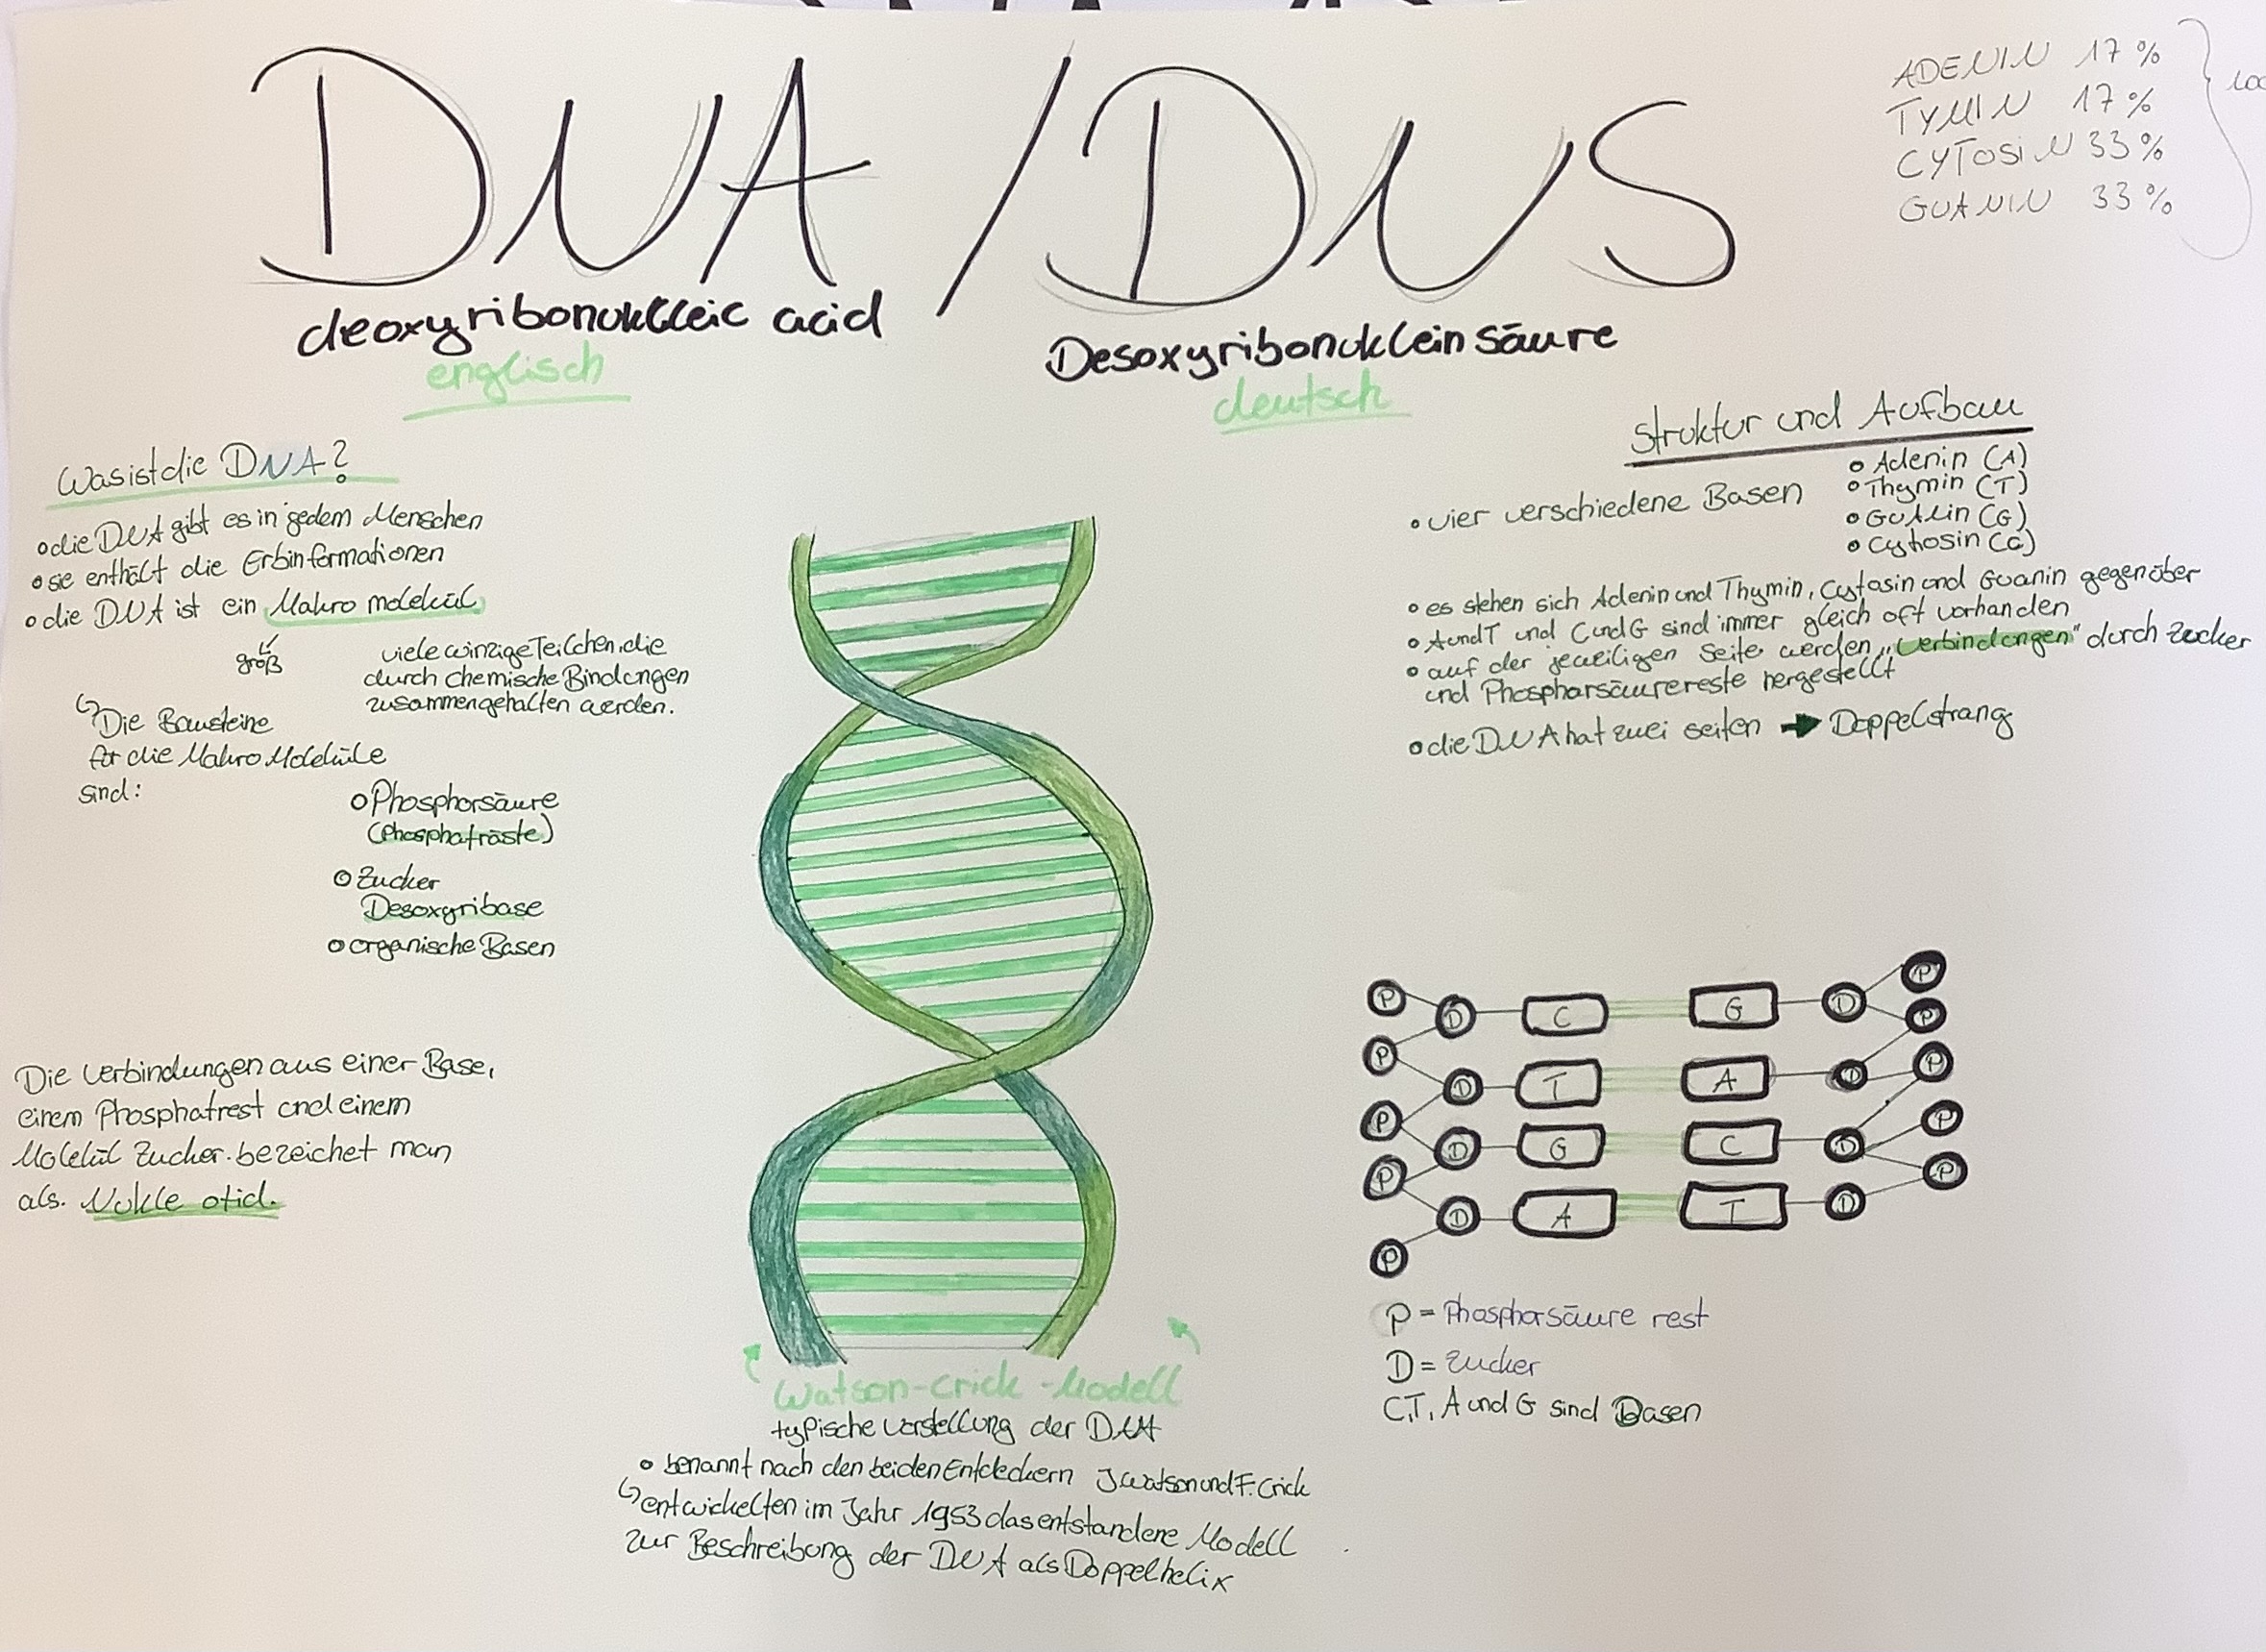 DNA / DNS
deoxyribonukleic acid
englisch
Desoxyribonukleinsäure
deutsch
ADENIN 17 %
TYMIN 17 %
CYTOSIN 33 %
GUANIN 33 %
Was ist die DNA?
die DNA gibt es in jedem Menschen
sie enthält die Erbinformationen
die DNA ist ein Makro molekül
groß
viele winzige Teilchen, die
durch chemische Bindungen
zusammengehalten werden.
Die Bausteine
für die Makro Moleküle
sind:
Phosphorsäure
(Phosphaträste)
Zucker
Desoxyribase
organische Basen
Die Verbindungen aus einer Base,
einem Phosphatrest und einem
Molekül Zucker. bezeichet man
als. Nukle otid.
Watson-Crick-Modell
typische Vorstellung der DNA
benannt nach den beiden Entdeckern J Watson und F. Crick
entwickelten im Jahr 1953 das entstandene Modell
zur Beschreibung der DNA als Doppelhelix
Struktur und Aufbau
vier verschiedene Basen
Adenin (A)
Thymin (T)
(G)
Cythosin (C)
es stehen sich Adenin und Thymin, Cytosin und Guanin gegenüber
A und T und C und G sind immer gleich oft vorhanden
auf der jeweiligen Seite werden „Verbindungen" durch Zucker
und Phospharsäurereste hergestellt
die DNA hat zwei seiten ➡ Doppelstrang
P D C G D P
P P
D T A D P
P D G C D P
P P
D A T D
P
P = Phosphorsäure rest
D = Zucker
C,T, A und G sind Basen